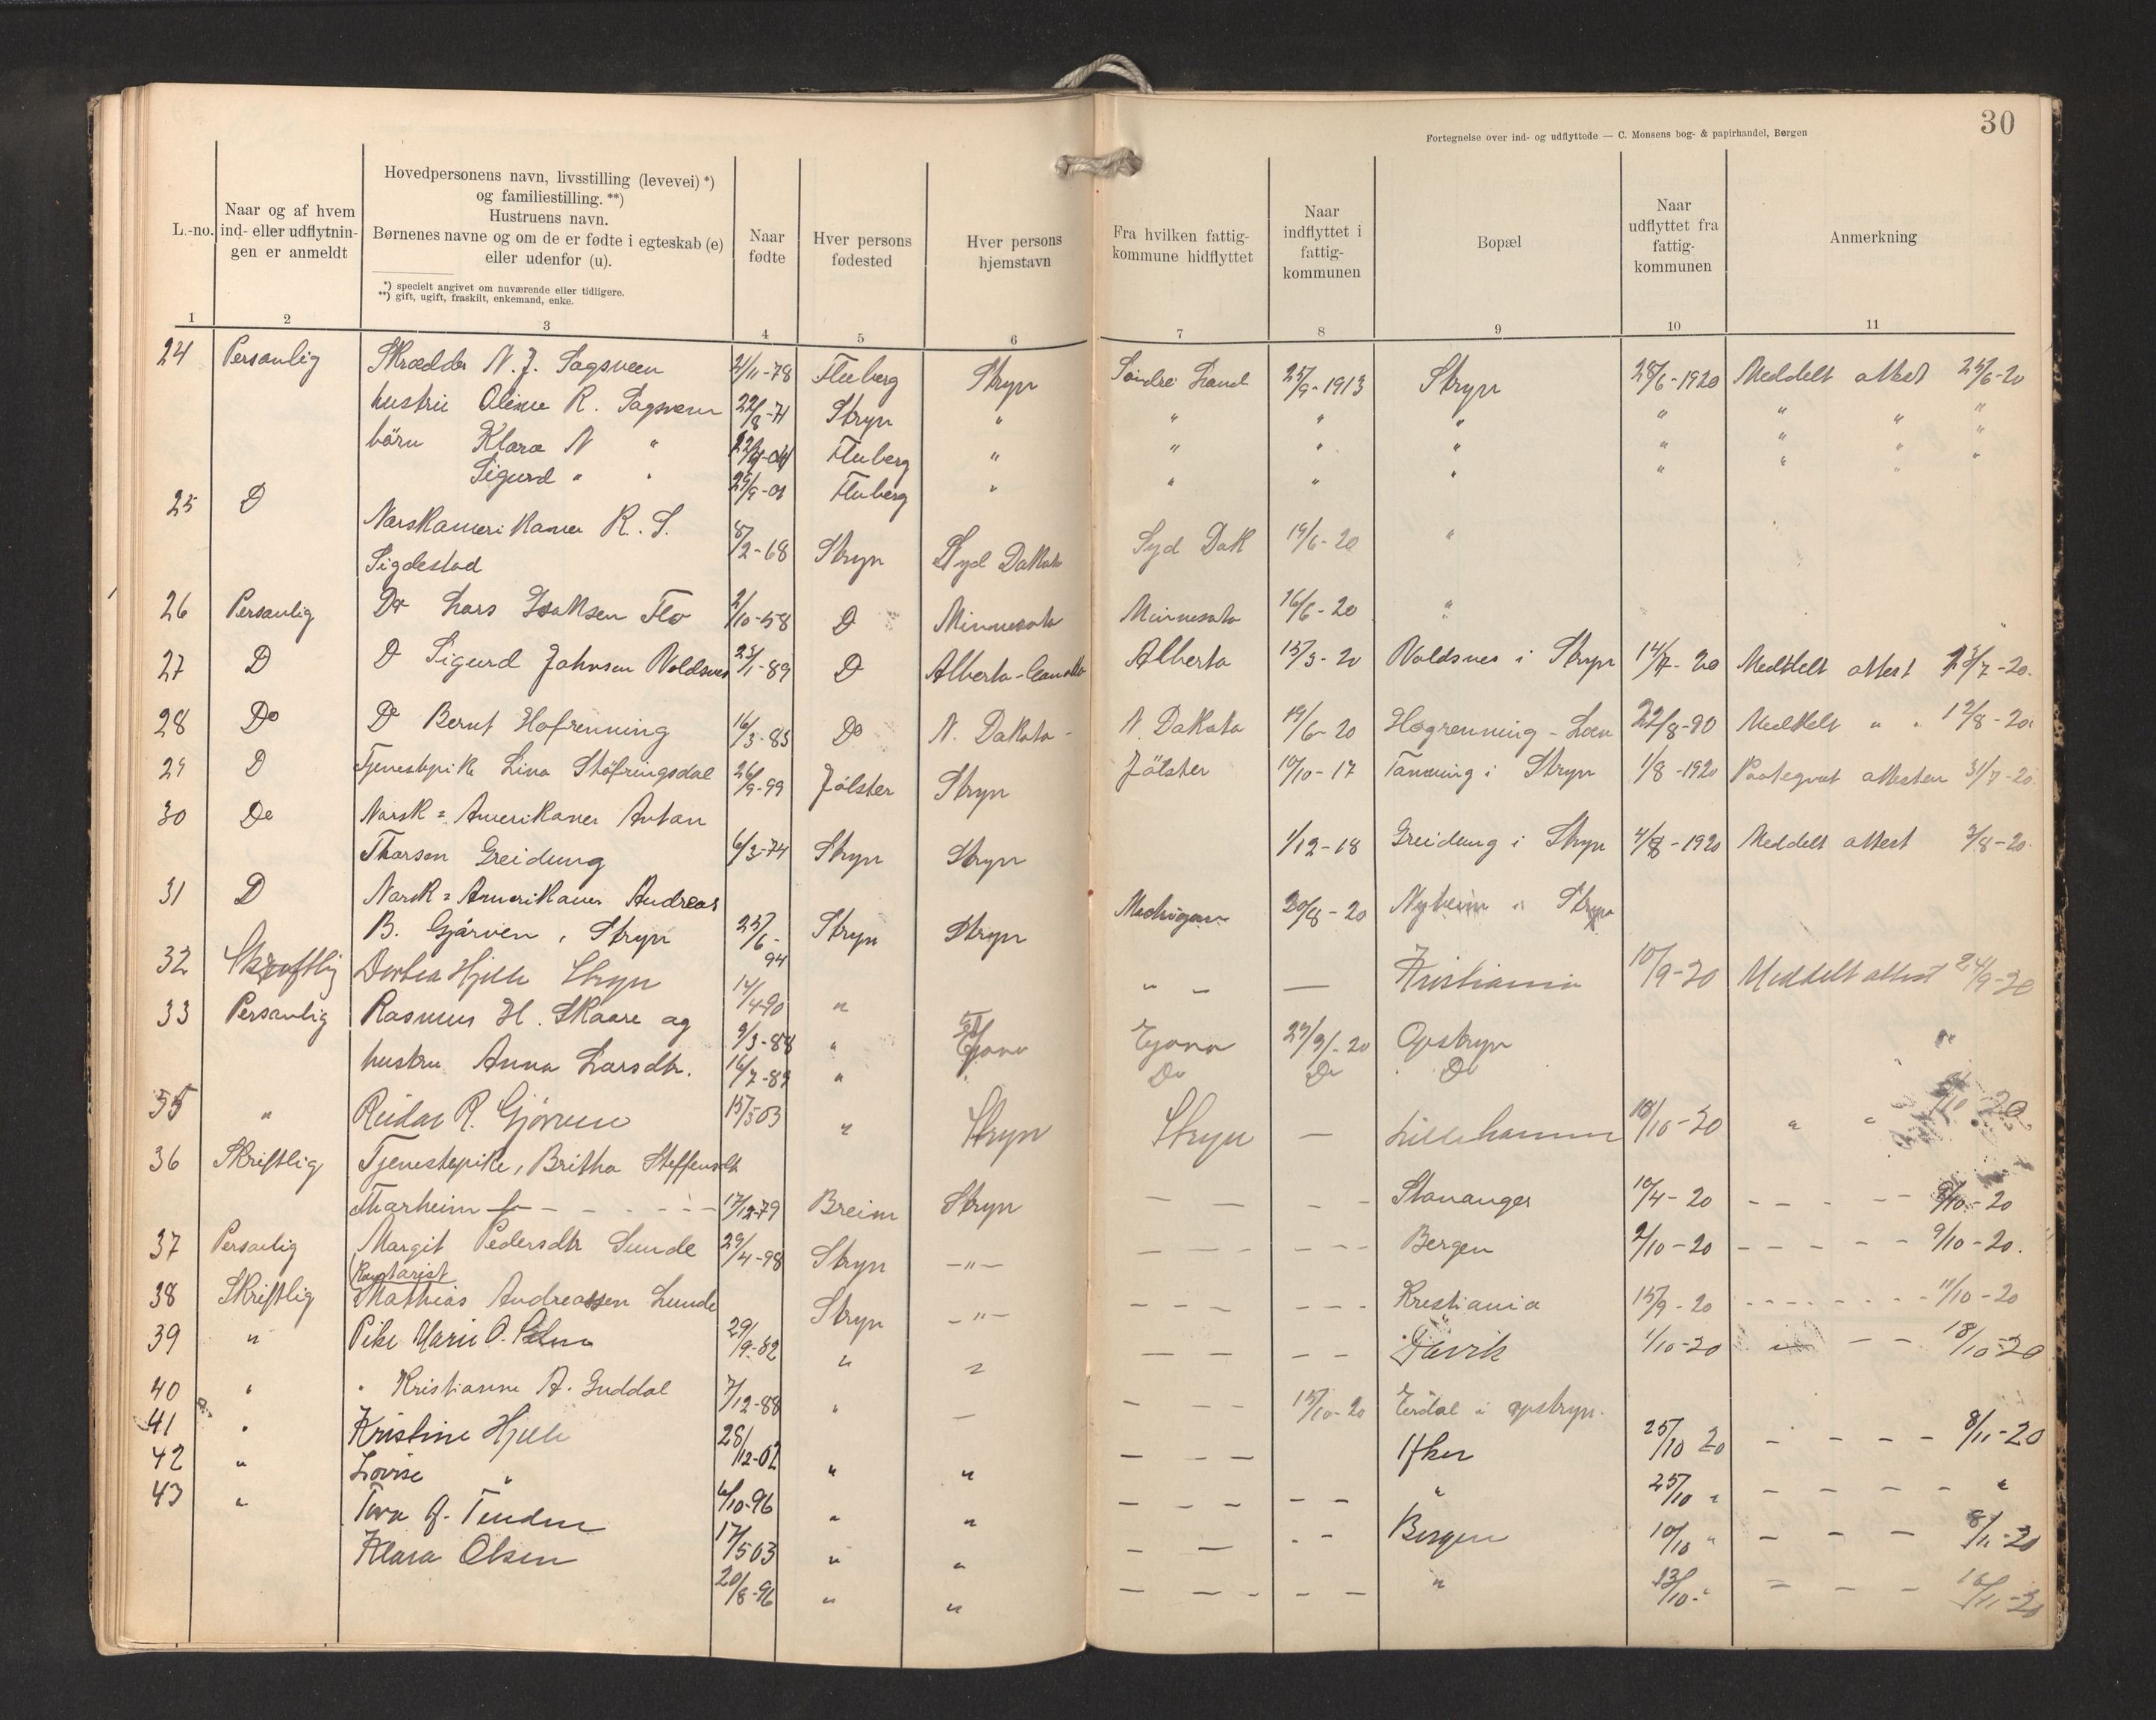 30
Fortegnelse over ind- og udflyttede — C. Monsens bog- & papirhandel, Bergen
L.-no.
Naar og af hvem
ind- eller udflytnin-
gen er anmeldt
Hovedpersonens navn, livsstilling (levevei) *)
og familiestilling. **)
Hustruens navn.
Børnenes navne og om de er fødte i egteskab (e)
eller udenfor (u).
*) specielt angivet om nuværende eller tidligere.
**) gift, ugift, fraskilt, enkemand, enke.
Naar
fødte
Hver persons
fødested
Hver persons
hjemstavn
Fra hvilken fattig-
kommune hidflyttet
Naar
indflyttet i
fattig-
kommunen
Bopæl
Naar
udflyttet fra
fattig-
kommunen
Anmerkning
1 2 3 4 5 6 7 8 9 10 11
24 Personlig Skrædder N. J. Sagsveen 2/11-78 Fluberg Stryn Søndre Land 25/9-1913 Stryn 28/6-1920 Meddelt attest 25/6-20
hustru Oline R. Sagsveen 22/8-71 Stryn " " " " " " " "
børn Klara N " Fluberg " " " " " " " "
Sigurd " " 25/9-01 Fluberg " " " " " " " "
25 D Norskamerikaner R. S.
Sigdestad 8/2-68 Stryn Syd Dakota Syd Dak 19/6-20 "
26 Personlig Do Lars Isaksen Flo 2/10-58 D Minnesota Minnesota 16/6-20 "
27 D D Sigurd Johnsen Voldsnes 23/1-89 D Alberta-Canada Alberta 15/3-20 Voldsnes i Stryn 14/7-20 Meddelt attest 23/7-20.
28 Do D Bernt Hofrenning 16/3-83 Do N. Dakota - N. Dakota 19/6-20 Hogrenning - Loen 22/8-90 Meddelt " " 12/8-20.
29 D Tjenestepike Lina Støfringsdal 26/9-99 Jølster Stryn Jølster 10/10-17 Tonning i Stryn 1/8-1920 Paategnet attesten 31/7-20.
30 Do Norsk = Amerikaner Anton
Thorsen Greidung 6/3-74 Stryn Stryn 1/12-18 Greidung i Stryn 4/8-1920 Meddelt attest 3/8-20.
31 D Norsk = Amerikaner Andreas
B. Gjørven, Stryn 25/6-94 Stryn Stryn Michigan 20/8-20 Nyheim i Stryn
32 Skriftlig Dortea Hjelle Stryn 14/4-90 " " - — Kristiania 10/9-20 Meddelt attest 24/9-20
33 Personlig Rasmus H. Skaare og 9/3-88 " 29/9-20 Opstryn "
hustru Anna Larsdtr. 16/7-89 " " Do Do Do
35 " Reidar R. Gjørven 15/5 03 " Stryn Stryn — Lillehammer 18/10-20 " "
36 Skriftlig Tjenestepike, Britha Steffensdt
Tharheim - - - - 17/12-79 Breim Stryn — — - - Stavanger 10/4-20 - - - - - 9/10-20
37 Personlig Margit Pedersdtr Sunde 29/4-98 Stryn -"- - - - - - - Bergen 2/10-20 - - - - - 9/10-20.
Kontorist
38 Skriftlig Mathias Andreassen Lunde Stryn -"- - - - - - - Kristiania 15/9-20 - - - - - 11/10-20
39 " Pike Marie O. 29/9-82 " " — — - - Davik 1/10-20 — — 18/10-20
40 " " Kristianne A. Guddal 7/12-88 " — - - - 15/10-20 Eirdal i opstryn.
41 " Kristine Hjelle 28/12-02 " " — - - Asker 25/10 20 - - - - 8/11-20
42 " Lovise " 6/10-96 " " - - - - - " 25/10 " - - - - - "
43 " Tora J. Tenden 17/5 03 " " — — - - Bergen 10/10 " - - - 8/11-20
Klara Olsen 20/8-96 " " - - - - - " 13/10-" - - - 18/11-20